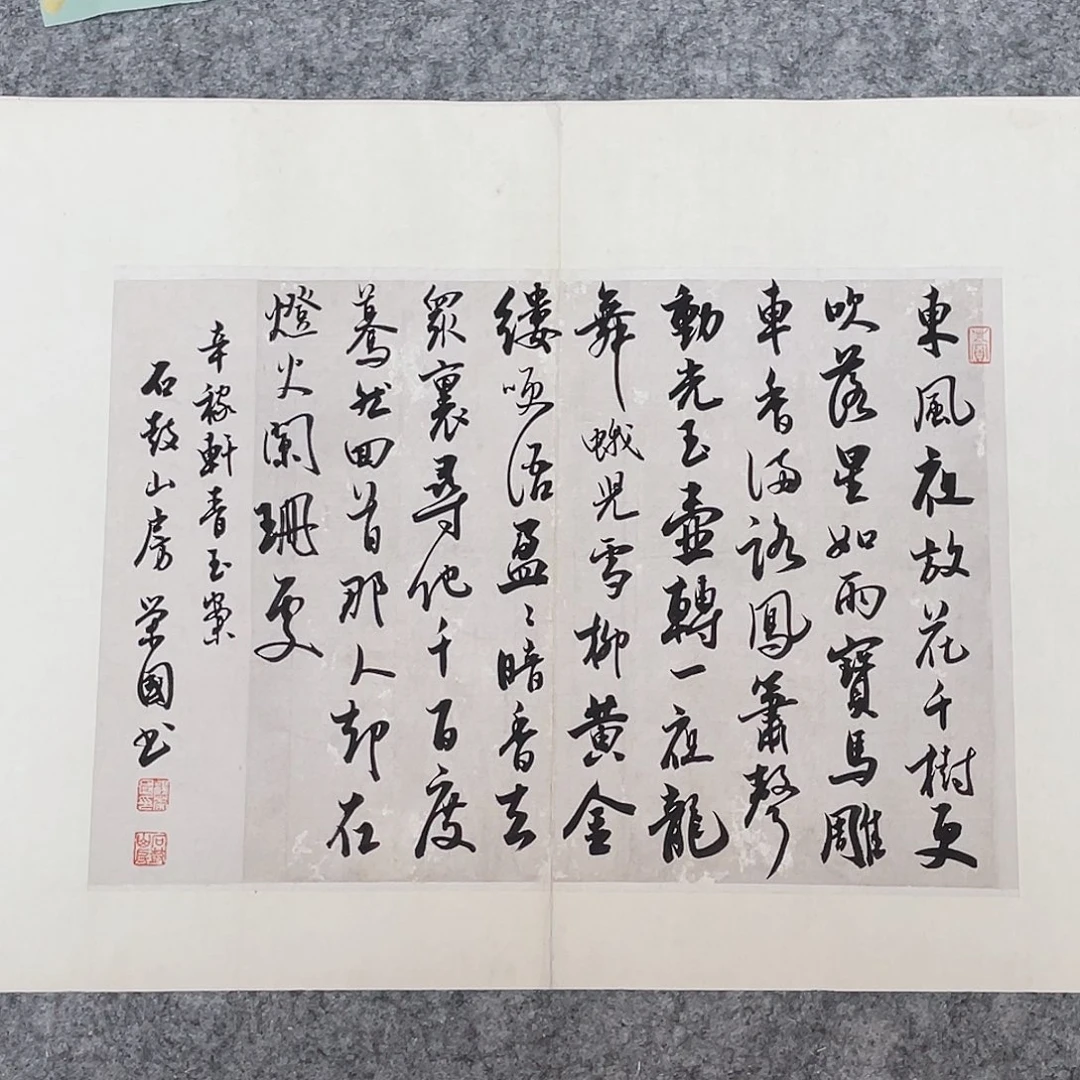 東風夜放花千樹更
吹落星如雨寶馬雕
車香滿路鳳簫聲
動光玉壺轉一夜龍
舞蛾兒雪柳黃金
縷咲語盈〻暗香去
眾裏尋他千百度
驀然回首那人却在
燈火闌珊處
辛稼軒青玉案
石鼓山房荣國书